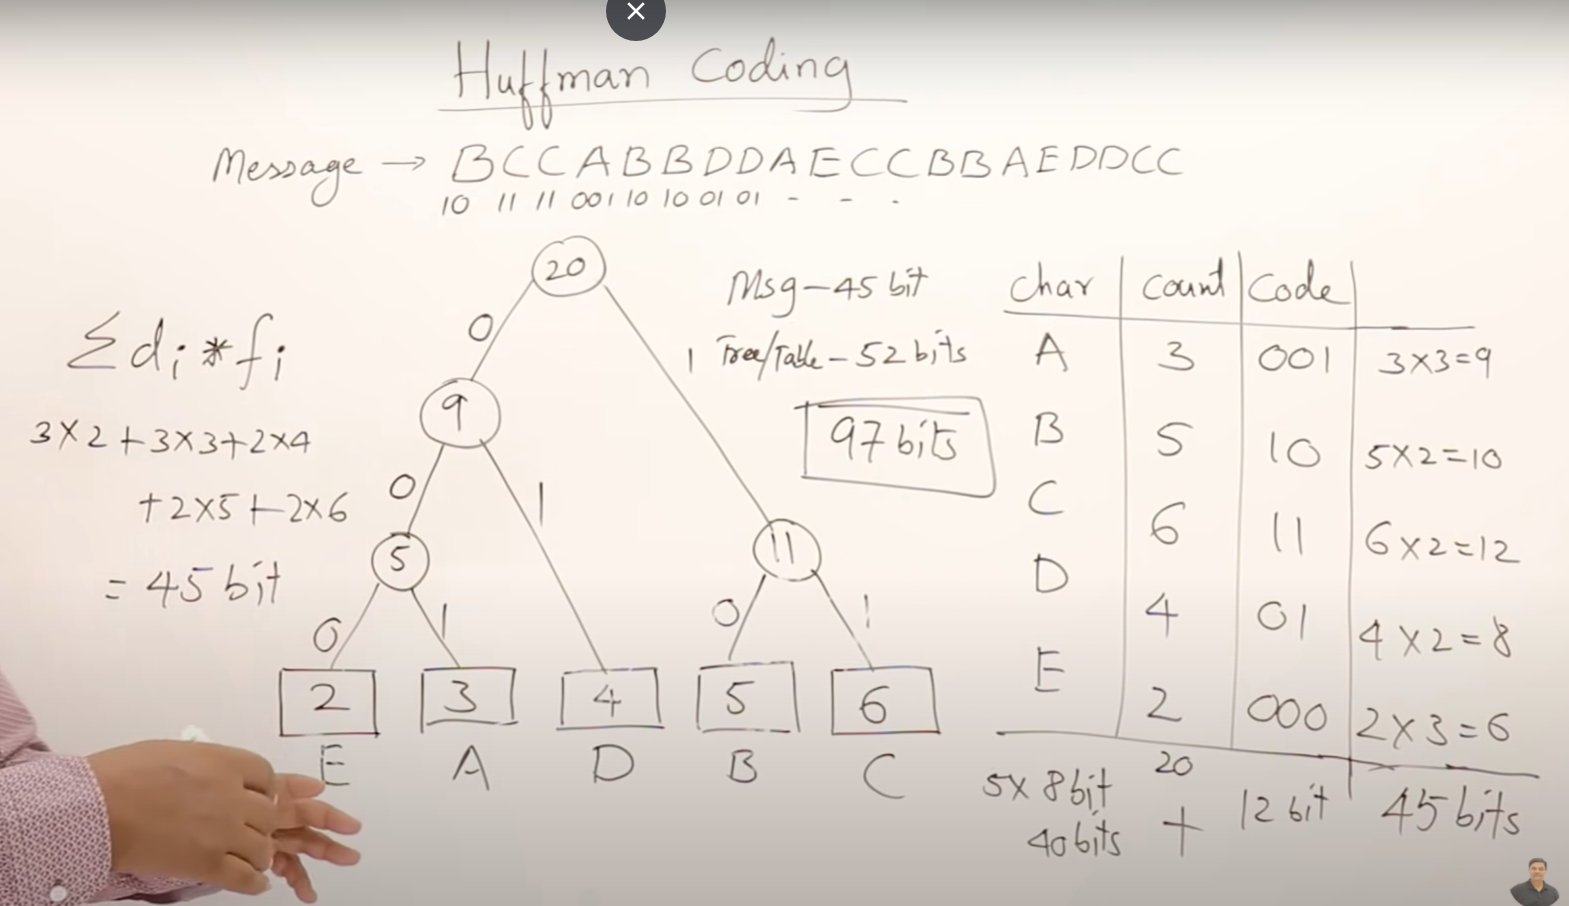 Huffman Coding
Message → BCCABBDDAECCBBAEDDCC
10 11 11 001 10 10 01 01 - - .
20
0
1
9
0
1
5
11
0
1
0
1
2
3
4
5
6
E
A
D
B
C
Σdi*fi
3×2+3×3+2×4
+2×5+2×6
= 45 bit
Msg-45 bit
Tree/Table-52 bits
97 bits
char count Code
A 3 001 3×3=9
B 5 10 5×2=10
C 6 11 6×2=12
D 4 01 4×2=8
E 2 000 2×3=6
20
5×8bit
40bits + 12 bit 45bits